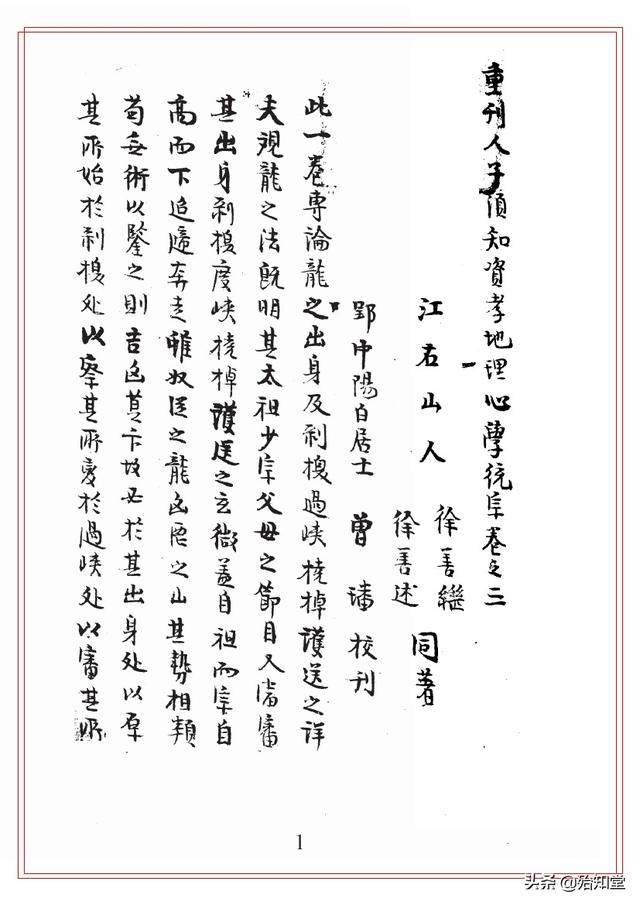 重刊人子須知資孝地理心學統宗卷之二
江右山人
徐善繼
徐善述
同著
郢中陽白居士 曾璠校刊
此一卷專論龍之出身及剥換過峽橈棹護送之详
夫視龍之法既明其太祖少宗父母之節目又當審
其出身剥換度峽橈棹護送之玄微蓋自祖而宗自
高而下追隨奔走雖奴從之龍凶惡之山其勢相類
苟無術以鑒之則吉凶莫卞故必於其出身处以原
其所始於剥換处以察其所变於過峽处以審其所
1
头条 @殆知堂